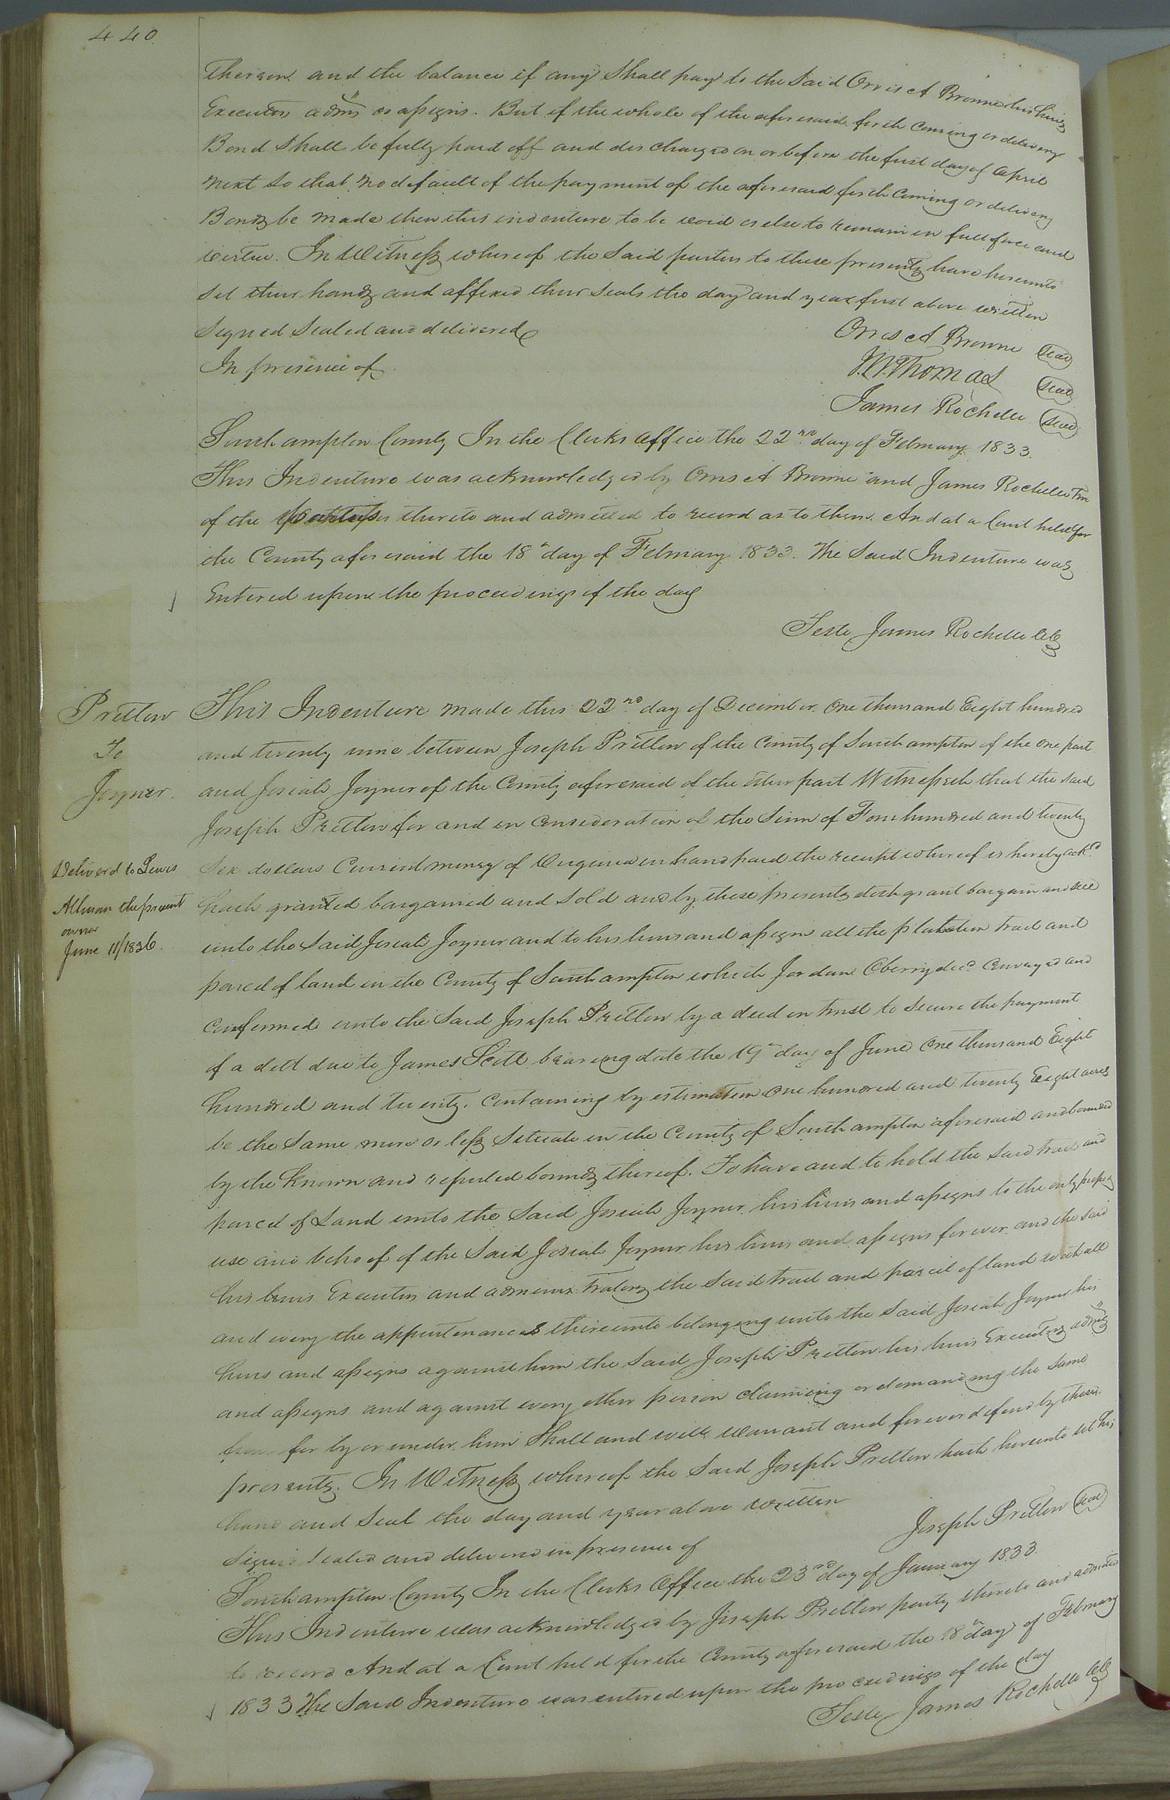 440
Thereon and the balance if any Shall pay to the Said Orris A Browne his heirs
Executors adms or assigns. But if the whole of the aforesaid forth coming or delivery
Bond Shall be fully paid off and discharged on or before the first day of April
next So that no default of the payment of the aforesaid forth Coming or delivery
Bonds be made then this indenture to be void or else to remain in full force and
virtue. In Witness whereof the Said parties to these presents have hereunto
Set their hands and affixed their Seals the day and year first above written
Signed Sealed and delivered
In presence of
Orris A Browne Seal
J. M. Thomas Seal
James Rochelle Seal
Southampton County In the Clerks Office the 22nd day of February 1833.
This Indenture was acknowledged by Orris A Browne and James Rochelle two
of the parties thereto and admitted to record as to them. And at a Court held for
the County aforesaid the 18th day of February 1833. The Said Indenture was
Entered upon the proceedings of the day
Teste James Rochelle Clk
Pretlow
To
Joyner.
Delivered to Lewis
Allman the present
owner
June 11/1836.
This Indenture made this 22nd day of December One thousand Eight hundred
and twenty nine between Joseph Pretlow of the County of Southampton of the one part
and Josiah Joyner of the County aforesaid of the other part Witnesseth that the said
Joseph Pretlow for and in Consideration of the Sum of Four hundred and twenty
Six dollars Current money of Virginia in hand paid the receipt whereof is hereby ackd
hath granted bargained and Sold and by these presents doth grant bargain and sell
unto the Said Josiah Joyner and to his heirs and assigns all the plantation tract and
parcel of land in the County of Southampton which Jordan Oberry decd Conveyed and
Confirmed unto the Said Joseph Pretlow by a deed in trust to Secure the payment
of a debt due to James Scott bearing date the 19th day of June One thousand Eight
hundred and twenty. Containing by estimation One hundred and twenty Eight acres
be the Same more or less Situate in the County of Southampton aforesaid and bounded
by the Known and reputed bounds thereof. To have and to hold the Said tract and
parcel of Land unto the Said Josiah Joyner his heirs and assigns to the only proper
use and behoof of the Said Josiah Joyner his heirs and assigns forever and the said
his heirs Executors and administrators the Said tract and parcel of land with all
and every the appurtenances thereunto belonging unto the Said Josiah Joyner his
heirs and assigns against him the Said Joseph Pretlow his heirs Executors admrs
and assigns and against every other person Claiming or demanding the Same
from for by or under him Shall and will Warrant and forever defend by these
presents. In Witness whereof the Said Joseph Pretlow hath hereunto set his
hand and Seal the day and year above written
Signed Sealed and delivered in presence of
Joseph Pretlow Seal
Southampton County In the Clerks Office the 23rd day of January 1833
This Indenture was acknowledged by Joseph Pretlow party thereto and admitted
to record And at a Court held for the County aforesaid the 18th day of February
1833 The Said Indenture was entered upon the proceedings of the day
Teste James Rochelle Clk